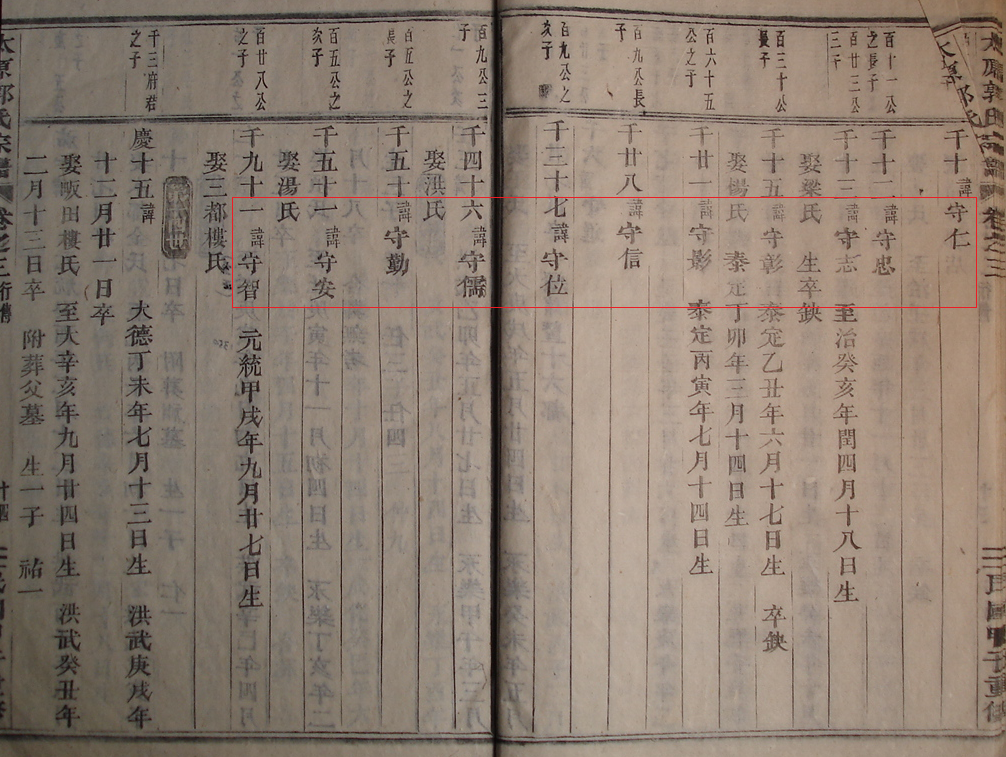 太原郭氏宗譜 卷之三 行傳
千十 諱守仁
百十一公之長子
千十二 諱守忠
百廿三公三子
千十三 諱守志 至治癸亥年閏四月十八日生
娶梁氏 生卒缺
百三十公長子
千十五 諱守彰 泰定乙丑年六月十七日生 卒缺
娶楊氏 泰定丁卯年三月十四日生
百六十五公之子
千廿一 諱守影 泰定丙寅年七月十四日生
百九公長子
千廿八 諱守信
百九公之次子
千三十七 諱守位
百九公三子
千四十六 諱守儒
娶洪氏
百五公之長子
千五十 諱守勤
百五公之次子
千五十一 諱守安
娶湯氏
百廿八公公之子
千九十一 諱守智 元統甲戌年九月廿七日生
娶三都樓氏
千三府君之子
慶十五 諱 大德丁未年七月十三日生 洪武庚戌年
十二月廿一日卒
娶畈田樓氏 至大辛亥年九月廿四日生 洪武癸丑年
二月十三日卒 附葬父墓 生一子 祐一
太原郭氏宗譜 卷之三 行傳